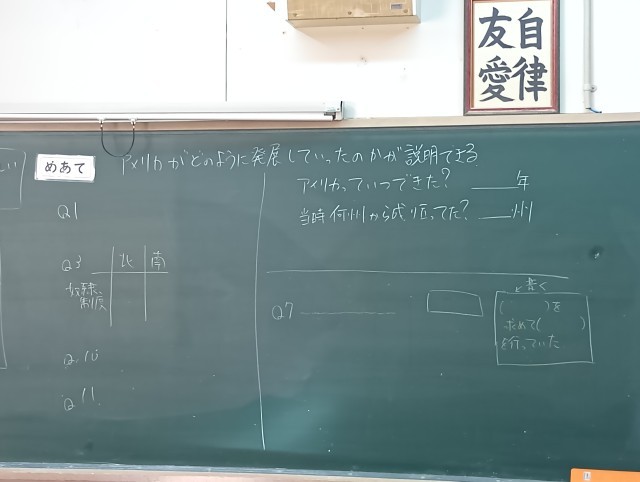 友愛 自律
めあて アメリカがどのように発展していったのかが説明できる
アメリカっていつできた? 年
当時何州から成り立ってた? 州
Q1
Q3 北 南
奴隷制度
Q10
Q11
Q7
書く
( )を
求めて( )
を行っていた